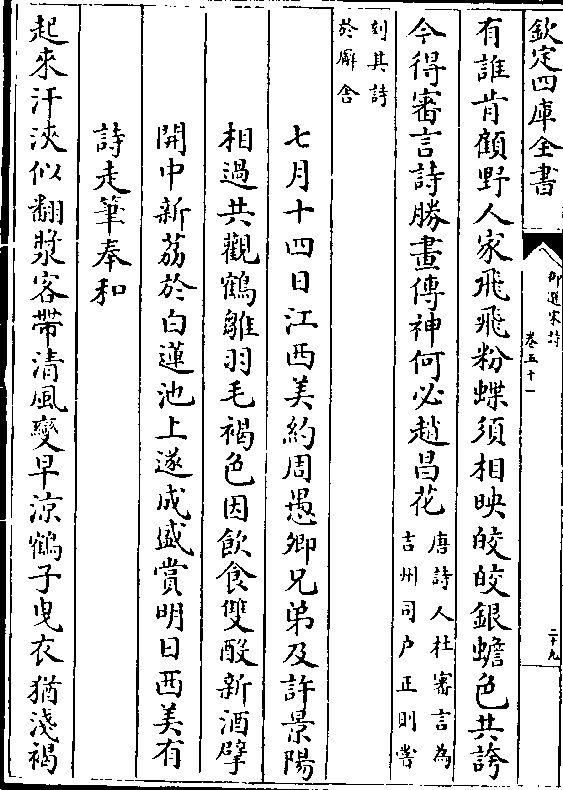 欽定四庫全書
御選宋詩
卷五十一
二十九
有誰肯顧野人家飛飛粉蝶須相映皎皎銀蟾色共誇
今得審言詩勝畫傳神何必趙昌花
唐詩人杜審言為
吉州司户正則嘗
刻其詩
於廨舍
七月十四日江西美約周愚卿兄弟及許景陽
相過共觀鶴雛羽毛褐色因飲食雙酘新酒擘
開中新荔於白蓮池上遂成盛賞明日西美有
詩走筆奉和
起來汗浹似翻漿客帶清風變早涼鶴子曳衣猶淺褐